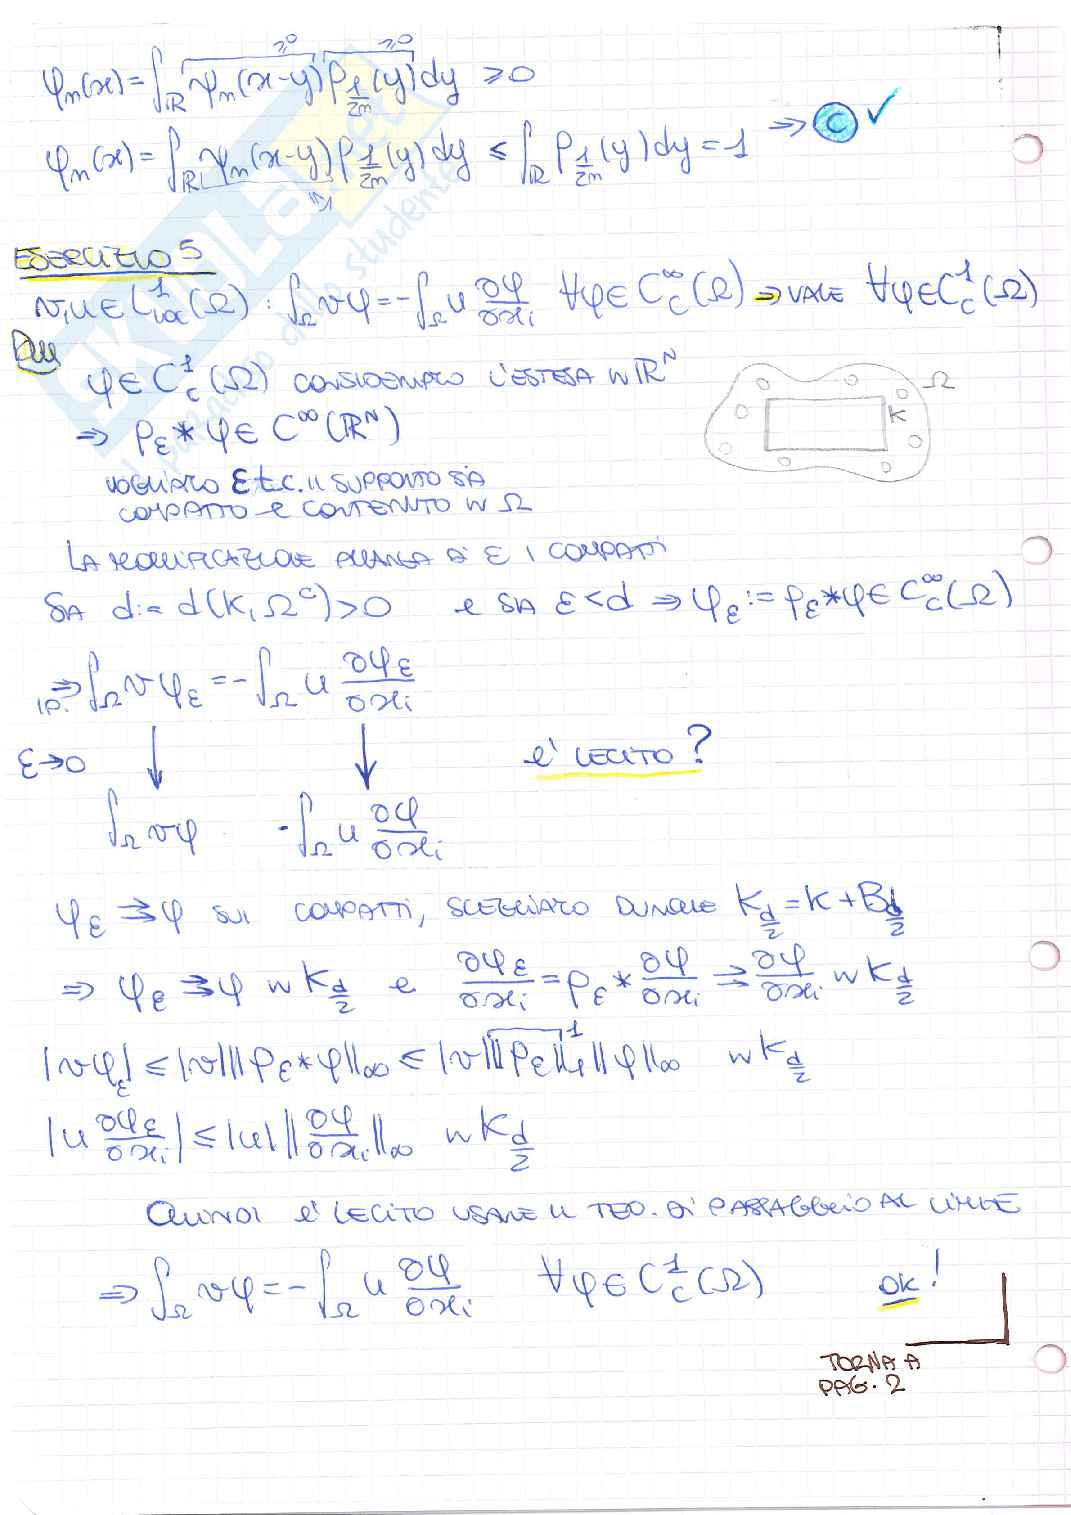 φₙ(x) = ∫_ℝ ψₙ(x-y) ρ_{1/2n}(y) dy ≥ 0
≥0 ≥0
φₙ(x) = ∫_ℝ ψₙ(x-y) ρ_{1/2n}(y) dy ≤ ∫_ℝ ρ_{1/2n}(y) dy = 1 ⇒ C ✓
≤1
ESERCIZIO 5
v, u ∈ L¹_loc(Ω) : ∫_Ω vφ = -∫_Ω u ∂φ/∂xᵢ ∀φ ∈ C_c^∞(Ω) ⇒ VALE ∀φ ∈ C_c^1(Ω)
Dim
φ ∈ C_c^1(Ω) CONSIDERIAMO L'ESTESA IN ℝ^N
⇒ ρ_ε * φ ∈ C^∞(ℝ^N)
Ω
K
VOGLIAMO ε t.c. IL SUPPORTO SIA
COMPATTO E CONTENUTO IN Ω
LA MOLLIFICAZIONE ALLARGA DI ε I COMPATTI
SIA d := d(K, Ω^c) > 0 E SIA ε < d ⇒ φ_ε := ρ_ε * φ ∈ C_c^∞(Ω)
⇒ ∫_Ω vφ_ε = -∫_Ω u ∂φ_ε/∂xᵢ
IP.
ε→0 ↓ ↓ E' LECITO?
∫_Ω vφ -∫_Ω u ∂φ/∂xᵢ
φ_ε ⇉ φ SUI COMPATTI, SCEGLIAMO DUNQUE K_{d/2} = K + B_{d/2}
⇒ φ_ε ⇉ φ IN K_{d/2} E ∂φ_ε/∂xᵢ = ρ_ε * ∂φ/∂xᵢ ⇉ ∂φ/∂xᵢ IN K_{d/2}
|vφ_ε| ≤ |v| ||ρ_ε * φ||_∞ ≤ |v| ||ρ_ε||_1 ||φ||_∞ IN K_{d/2}
1
|u ∂φ_ε/∂xᵢ| ≤ |u| ||∂φ/∂xᵢ||_∞ IN K_{d/2}
QUINDI E' LECITO USARE IL TEO. DI PASSAGGIO AL LIMITE
⇒ ∫_Ω vφ = -∫_Ω u ∂φ/∂xᵢ ∀φ ∈ C_c^1(Ω) OK!
TORNA A
PAG. 2